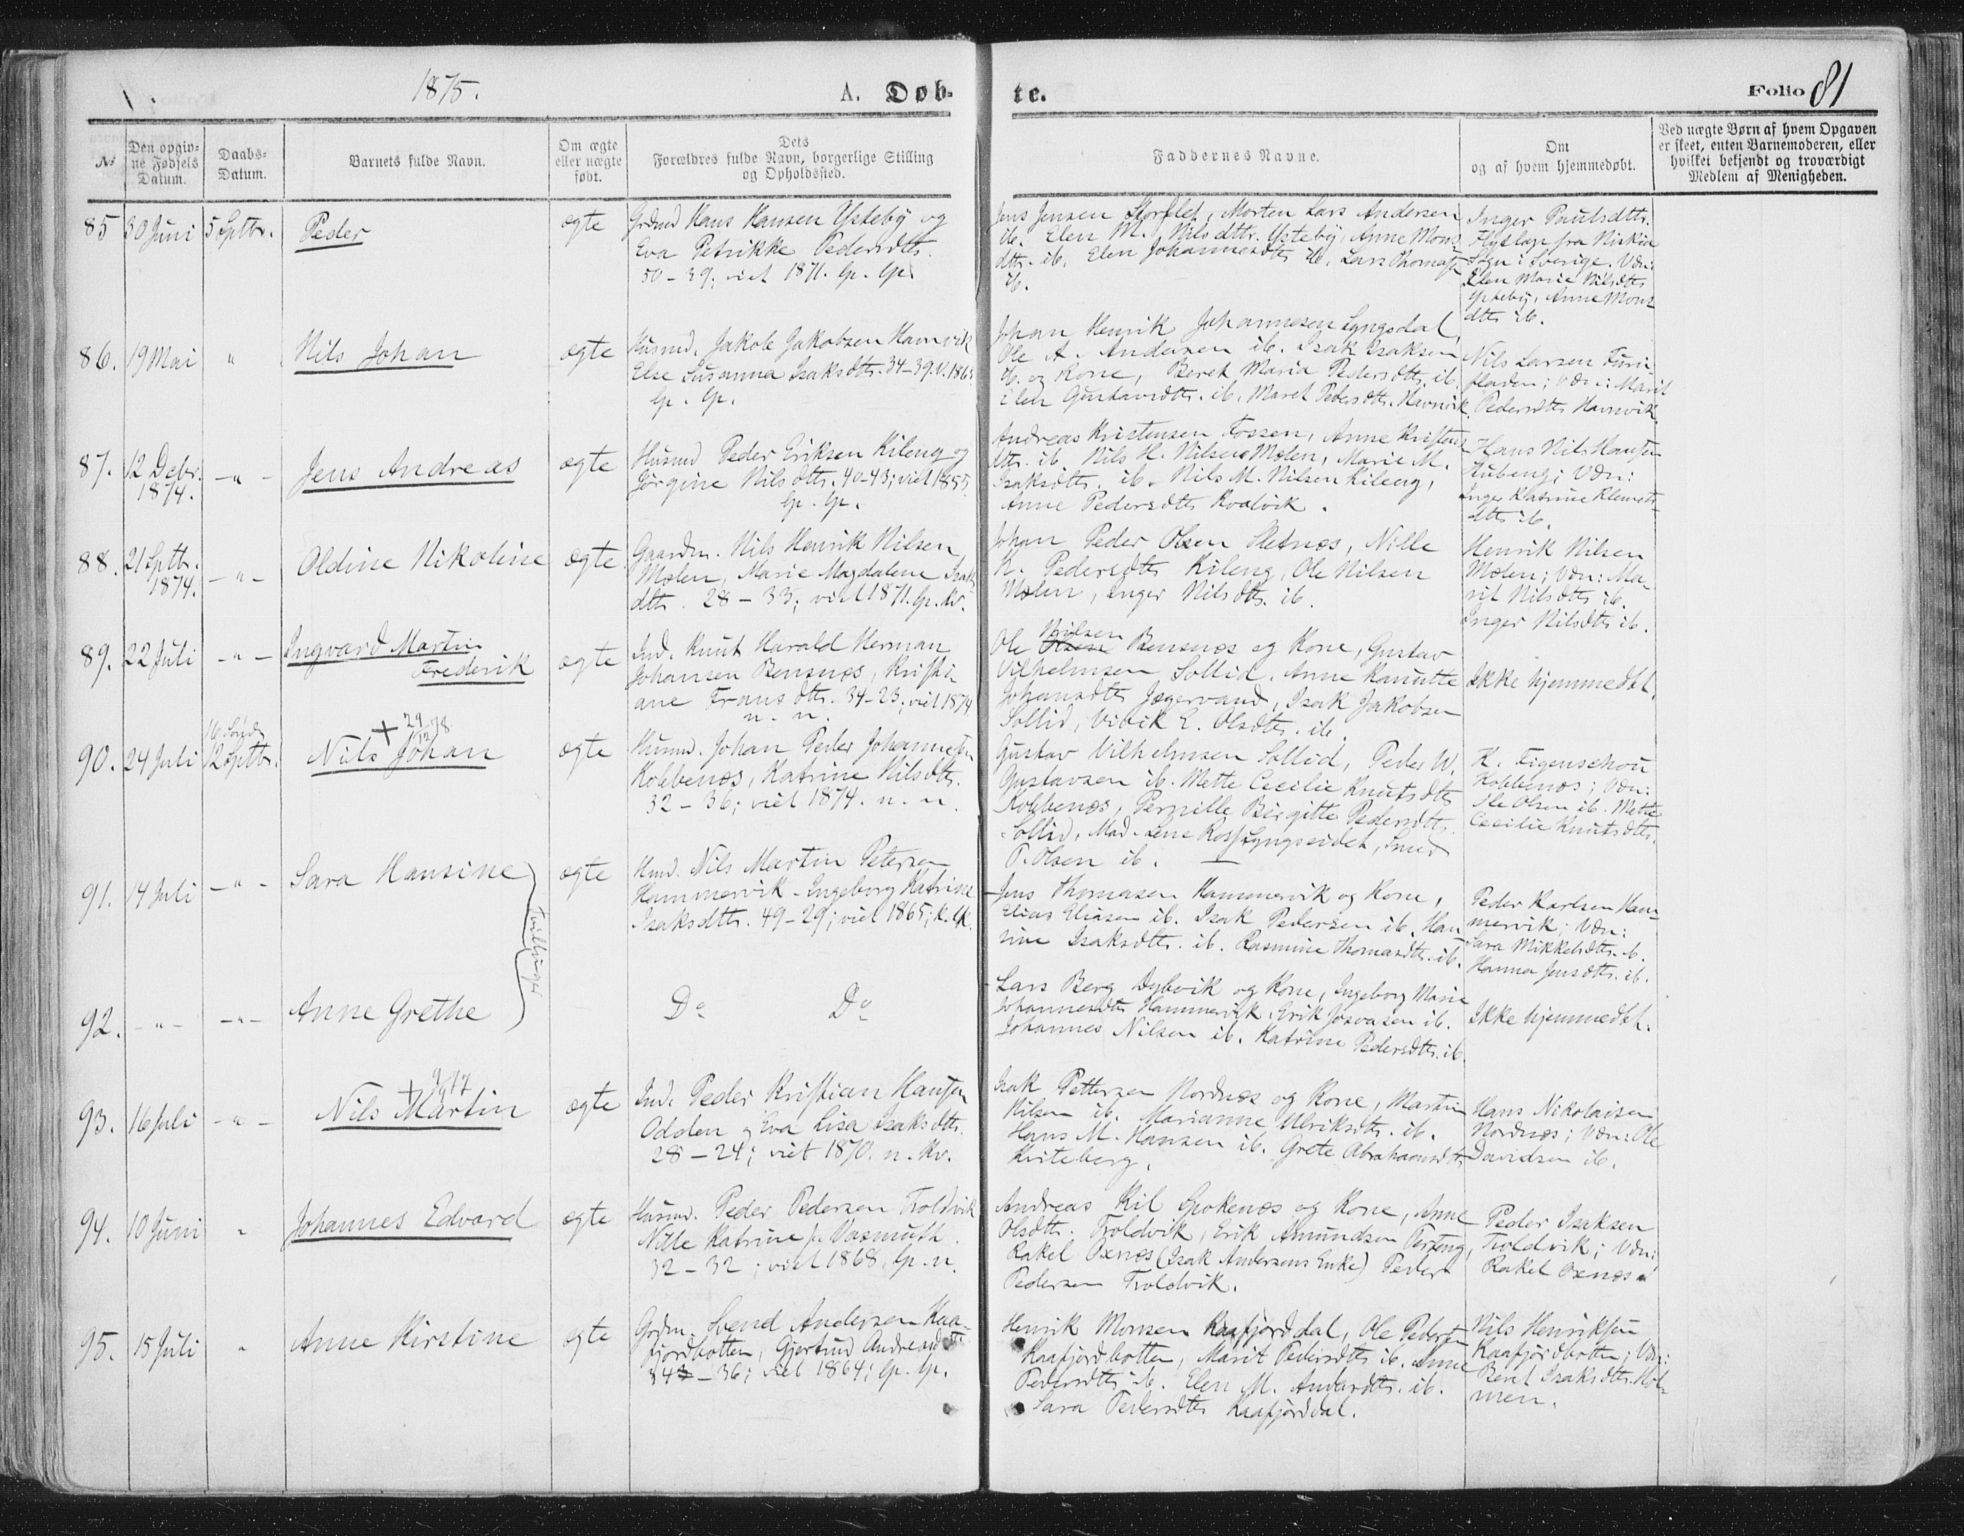 1875.
A. Døb-
te.
Folio 81
№
Den opgiv-
ne Fødsels
Datum.
Daabs-
Datum.
Barnets fulde Navn.
Om ægte
eller uægte
født.
Dets
Forældres fulde Navn, borgerlige Stilling
og Opholdssted.
Faddernes Navne.
Om
og af hvem hjemmedøbt.
Ved uægte Børn af hvem Opgaven
er skeet, enten Barnemoderen, eller
hvilket bekjendt og troværdigt
Medlem af Menigheden.
85 30 Juni 5 Septbr. Peder
ægte
Grdmd Hans Hansen Ysteby og
Eva Petrikke Pedersdttr.
50-39; viet 1871. Gp. Gp.
Jens Jensen Storslet, Morten Lars Andersen
ib. Elen M. Nilsdttr. Ysteby, Anne Mons
dttr. ib. Elen Johannesdttr ib. Lars Thomasen
ib.
Inger Paulsdttr.
fra
Sogn i Sverige. Vdn:
Elen Marie Nilsdttr
Ysteby, Anne Mons
dttr ib.
86. 19 Mai " Nils Johan
ægte
Husmd. Jakob Jakobsen Havnvik
Else Susanna Isaksdttr. 34-39. V. 1863
Gp. Gp.
Johan Henrik Johannesen Lyngsdal,
Ole A. Andersen ib. Isak Isaksen
ib. og Kone, Beret Maria Pedersdttr. ib.
Elen Gustavsdttr. ib. Maret Pedersdttr. Havnvik.
Nils Larsen Furu-
fladen; Vdn: Marit
Pedersdttr Havnvik
87. 12 Debr.
1874. -"- Jens Andreas
ægte
Husmd Peder Eriksen Kileng og
Jørgine Nilsdttr. 40-43; viet 1855.
Gp. Gp.
Andreas Kristensen Fossen, Anne Kristens
dttr. ib. Nils H. Nilsen Molen, Marie M.
Isaksdttr. ib. Nils M. Nilsen Kileng,
Anne Pedersdttr Kvalvik.
Hans Nils Hansen
Vdn:
Inger Katrine Klemets-
dttr ib.
88. 21 Septbr.
1874. -"- Oldine Nikoline
ægte
Gaardm. Nils Henrik Nilsen
Molen, Marie Magdalene Isaks
dttr. 28-33; viet 1871. Gp. Kv.
Johan Peder Olsen Sletnes, Nille
K. Pedersdttr Kileng, Ole Nilsen
Molen, Inger Nilsdttr. ib.
Henrik Nilsen
Molen; Vdn: Ma-
rit Nilsdttr ib.
Inger Nilsdttr ib.
89. 22 Juli -"- Ingvard Martin
Frederik
ægte
Ind. Knut Harald Herman
Johansen Bensnæs, Kristi-
ane Fransdttr. 34-23; viet 1874
n. n.
Nilsen
Ole Olsen Bensnæs og Kone, Gustav
Vilhelmsen Sollid, Anne Kanutte
Johansdttr Jægervand, Isak Jakobsen
Sollid, Vivik E. Olsdttr. ib.
Ikke hjemmedbt.
90. 24 Juli 16 Sønd.
12 Septbr. + 29/12 78
Nils Johan
ægte
Husmd. Johan Peder Johannesen
Kobbenæs, Katrine Nilsdttr.
32-36; viet 1874. n. n.
Gustav Vilhelmsen Sollid, Peder W.
Gustavsen ib. Mette Cecilie Knutsdttr
Kobbenæs, Pernille Birgitte Pedersdttr.
Sollid, Mad. Lene Ross Lyngseidet, Smed
P. Olsen ib.
K. Figenschou
Kobbenæs; Vdn:
Ole Olsen ib. Mette
Cecilie Knutsdttr.
91. 14 Juli -"- Sara Hansine
Tvillinger
ægte
Husmd. Nils Martin Petersen
Hammervik - Ingeborg Katrine
Isaksdttr. 49-29; viet 1865; K. Gk.
Jens Thomasen Hammervik og Kone,
Elias Eliasen ib. Isak Pedersen ib. Han
sine Isaksdttr. ib. Rasmine Thomasdttr. ib.
Peder Karlsen Ham-
mervik; Vdn:
Sara Mikkelsdttr. ib.
Hanna Jensdttr. ib.
92. -"- -"- Anne Grethe
Do Do
Lars Berg Dybvik og Kone, Ingeborg Marie
Johannesdttr Hammervik, Erik Josvasen ib.
Johannes Nilsen ib. Katrine Pedersdttr. ib
Ikke hjemmedbt.
93. 16 Juli -"- Nils Martin
ægte
Ind. Peder Kristian Hansen
Odden og Eva Lisa Isaksdttr.
28-24; viet 1870. n. Kv.
Isak Pettersen Nordnæs og Kone, Martin
Nilsen ib. Marianne Ulriksdttr. ib.
Hans M. Hansen ib. Grete Abrahamsdttr
Kviteberg.
Hans Nikolaisen
Nordnæs; Vdn: Ole
Davidsen ib.
94. 10 Juni " Johannes Edvard
ægte
Husmd. Peder Pedersen Troldvik
Nille Katrine f. Vasmuth.
32-32; viet 1868. Gp. n.
Andreas Kil Spokenæs og Kone, Anne
Olsdttr. Troldvik, Erik Amundsen Perteng,
Rakel Oxnæs (Isak Andersens Enke) Peder
Pedersen Troldvik.
Peder Isaksen
Troldvik; Vdn:
Rakel Oxnæs
95. 15 Juli " Anne Kirstine
ægte
Grdm. Svend Andersen Kaa-
fjordbotten, Gjertrud Andreasdttr
34-36; viet 1864; Gp. Gp.
Henrik Monsen Kaafjorddal, Ole Pedersen
Kaafjordbotten, Marit Pedersdttr ib. Anne
Pedersdttr ib. Elen M. Andersdttr. ib.
Sara Pedersdttr Kaafjorddal.
Nils Henriksen
Kaafjordbotten; Vdn:
Berit Isaksdttr. Hol-
men.